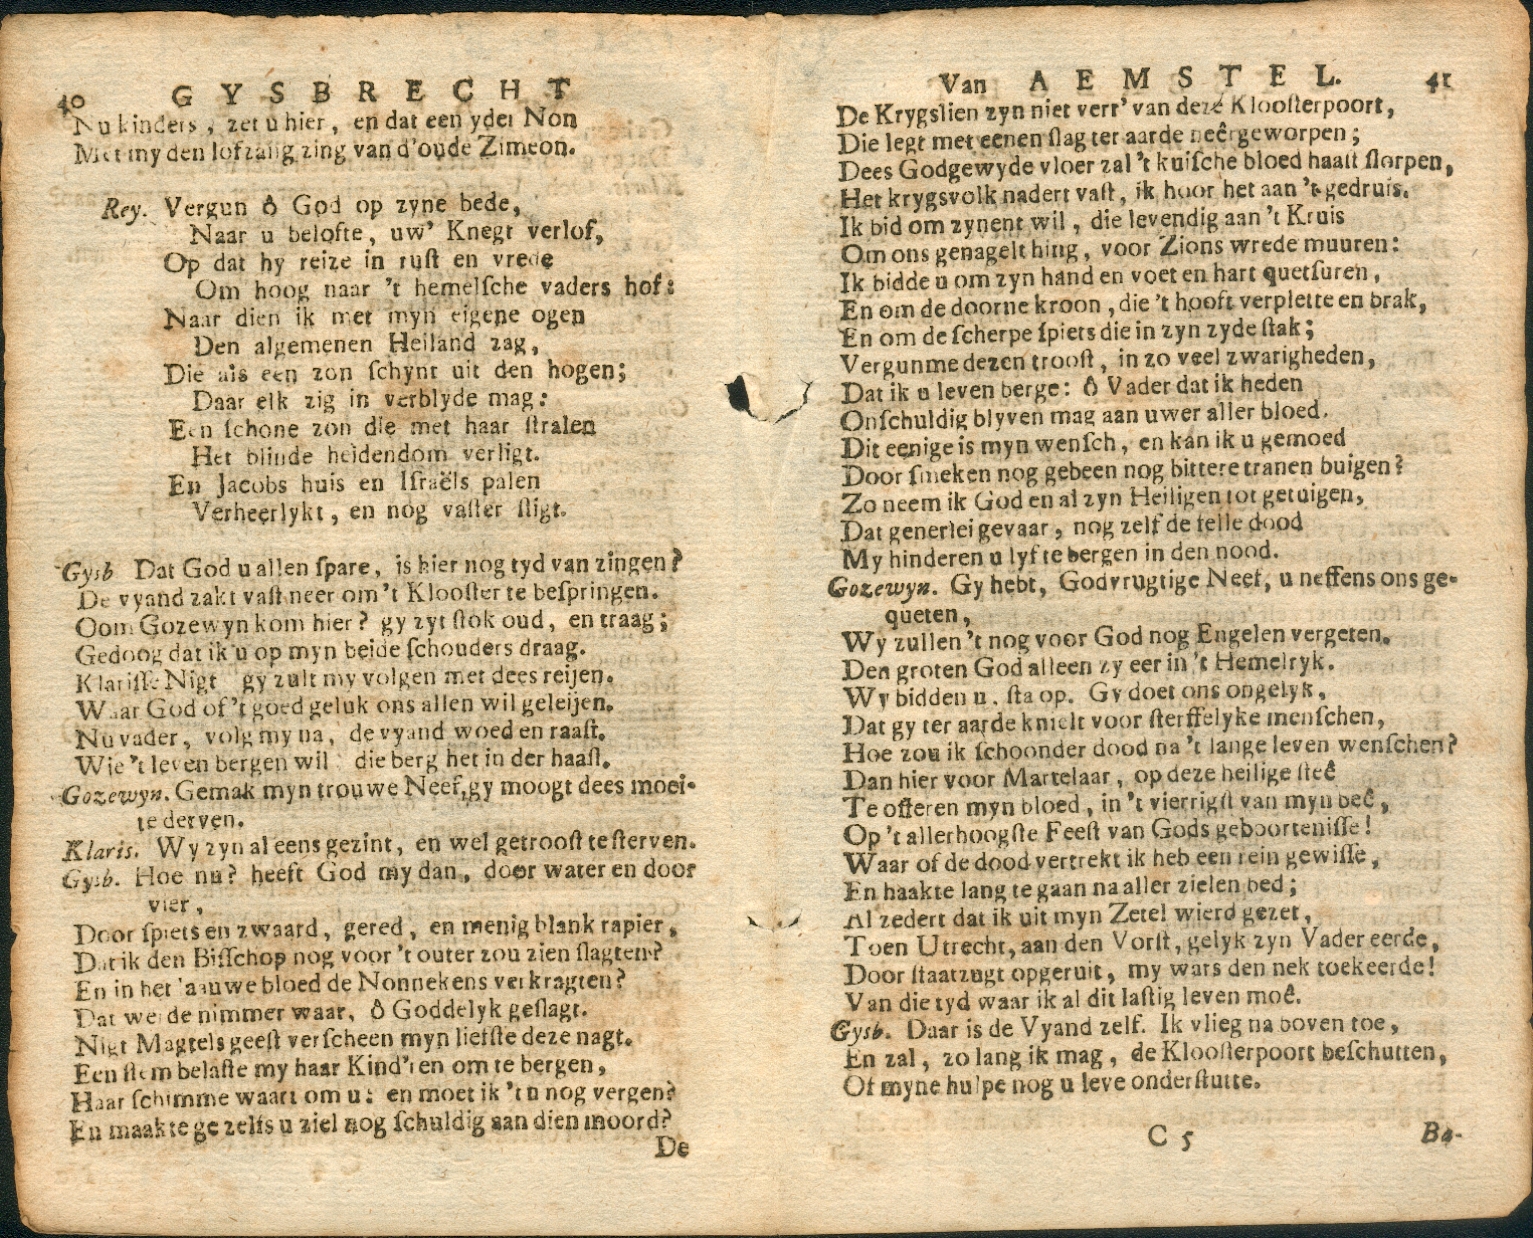 40 GYSBRECHT
Nu kinders, zet u hier, en dat een yder Non
Met my den lofzang zing van d'oude Zimeon.
Rey. Vergun ô God op zyne bede,
Naar u belofte, uw' Knegt verlof,
Op dat hy reize in ruſt en vrede
Om hoog naar 't hemelſche vaders hof:
Naar dien ik met myn eigene ogen
Den algemenen Heiland zag,
Die als een zon ſchynt uit den hogen;
Daar elk zig in verblyde mag:
Een ſchone zon die met haar ſtralen
Het blinde heidendom verligt.
En Jacobs huis en Iſraëls palen
Verheerlykt, en nog vaſter ſtigt.
Gysb Dat God u allen ſpare, is hier nog tyd van zingen?
De vyand zakt vaſt neer om 't Klooſter te beſpringen.
Oom Gozewyn kom hier? gy zyt ſtok oud, en traag;
Gedoog dat ik u op myn beide ſchouders draag.
Klariſſe Nigt gy zult my volgen met dees reijen.
Waar God of 't goed geluk ons allen wil geleijen.
Nu vader, volg my na, de vyand woed en raaſt.
Wie 't leven bergen wil die berg het in der haaſt.
Gozewyn. Gemak myn trouwe Neef, gy moogt dees moei-
te derven.
Klaris. Wy zyn al eens gezint, en wel getrooſt te ſterven.
Gysb. Hoe nu? heeft God my dan, door water en door
vier,
Door ſpiets en zwaard, gered, en menig blank rapier,
Dat ik den Biſſchop nog voor 't outer zou zien ſlagten?
En in het laauwe bloed de Nonnekens verkragten?
Dat werde nimmer waar, ô Goddelyk geſlagt.
Nigt Magtels geeſt verſcheen myn liefſte deze nagt.
Een ſtem belaſte my haar Kind'ren om te bergen,
Haar ſchimme waart om u: en moet ik 't u nog vergen?
En maakte ge zelfs u ziel nog ſchuldig aan dien moord?
De
Van AEMSTEL. 41
De Krygslien zyn niet verr' van deze Klooſterpoort,
Die legt met eenen ſlag ter aarde neêrgeworpen;
Dees Godgewyde vloer zal 't kuiſche bloed haaſt ſlorpen,
Het krygsvolk nadert vaſt, ik hoor het aan 't gedruis.
Ik bid om zynent wil, die levendig aan 't Kruis
Om ons genagelt hing, voor Zions wrede muuren:
Ik bidde u om zyn hand en voet en hart quetſuren,
En om de doorne kroon, die 't hooft verplette en brak,
En om de ſcherpe ſpiets die in zyn zyde ſtak;
Vergun me dezen trooſt, in zo veel zwarigheden,
Dat ik u leven berge: ô Vader dat ik heden
Onſchuldig blyven mag aan uwer aller bloed.
Dit eenige is myn wenſch, en kan ik u gemoed
Door ſmeken nog gebeen nog bittere tranen buigen?
Zo neem ik God en al zyn Heiligen tot getuigen,
Dat generlei gevaar, nog zelf de felle dood
My hinderen u lyf te bergen in den nood.
Gozewyn. Gy hebt, Godvrugtige Neef, u neffens ons ge-
queten,
Wy zullen 't nog voor God nog Engelen vergeten.
Den groten God alleen zy eer in 't Hemelryk.
Wy bidden u. ſta op. Gy doet ons ongelyk,
Dat gy ter aarde knielt voor ſterffelyke menſchen,
Hoe zou ik ſchoonder dood na 't lange leven wenſchen?
Dan hier voor Martelaar, op deze heilige ſteê
Te offeren myn bloed, in 't vierrigſt van myn beê,
Op 't allerhoogſte Feeſt van Gods geboorteniſſe!
Waar of de dood vertrekt ik heb een rein gewiſſe,
En haakte lang te gaan na aller zielen bed;
Al zedert dat ik uit myn Zetel wierd gezet,
Toen Utrecht, aan den Vorſt, gelyk zyn Vader eerde,
Door ſtaatzugt opgeruit, my wars den nek toekeerde!
Van die tyd waar ik al dit laſtig leven moê.
Gysb. Daar is de Vyand zelf. Ik vlieg na boven toe,
En zal, zo lang ik mag, de Klooſterpoort beſchutten,
Of myne hulpe nog u leve onderſtutte.
C 5 Ba-